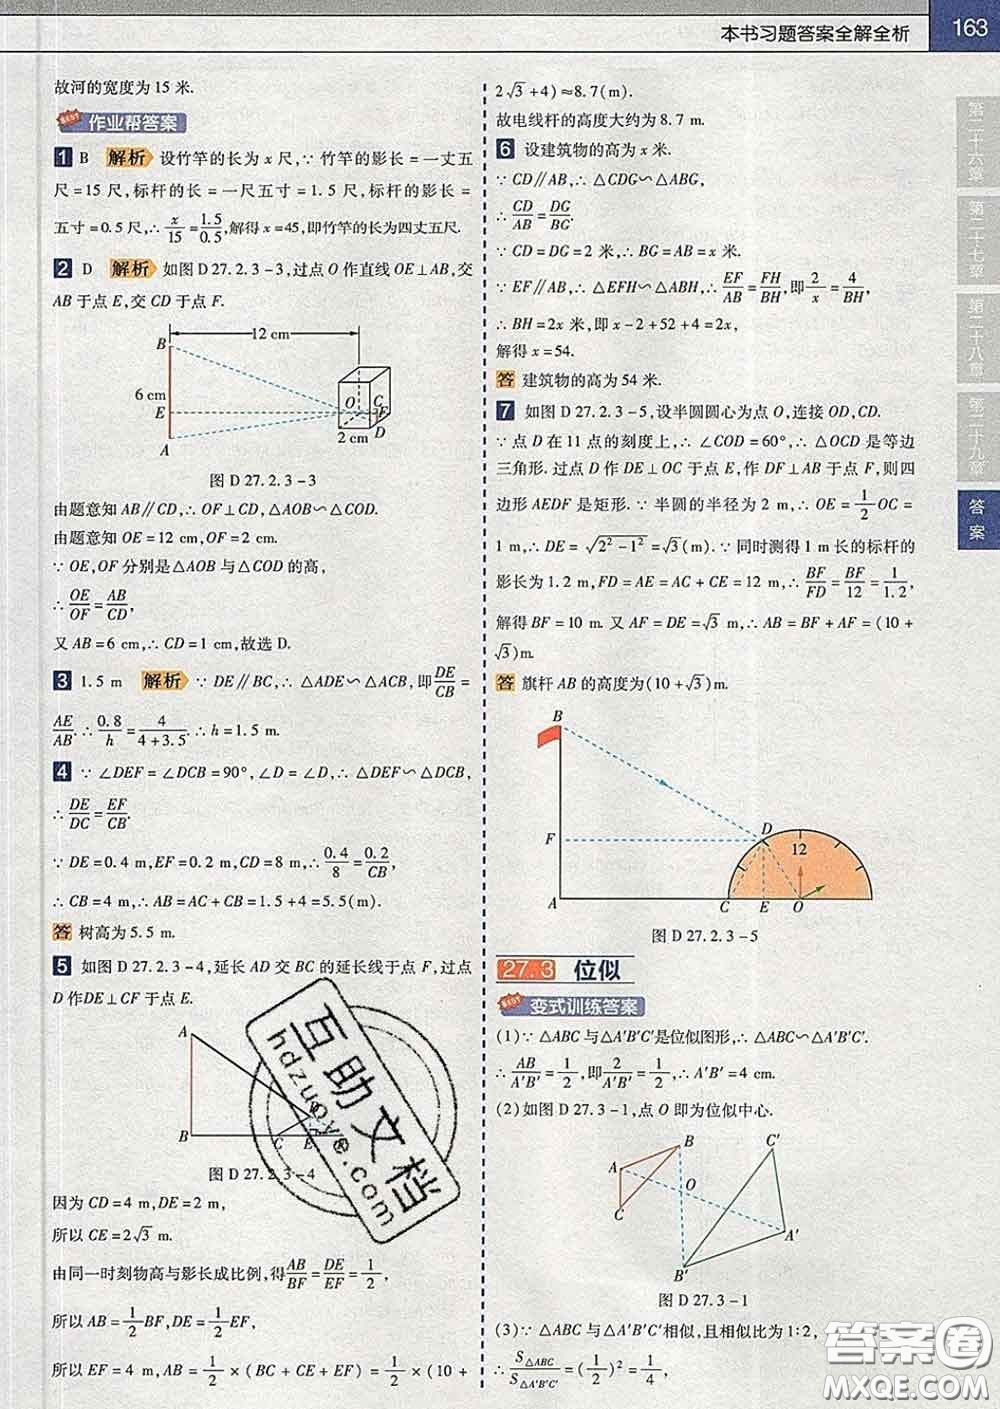 本书习题答案全解全析
163
故河的宽度为 15 米.
BEST 作业帮答案
1 B 解析 设竹竿的长为 x 尺,∵ 竹竿的影长 = 一丈五
尺 = 15 尺,标杆的长 = 一尺五寸 = 1.5 尺,标杆的影长 =
五寸 = 0.5 尺,∴ x/15 = 1.5/0.5,解得 x = 45,即竹竿的长为四丈五尺.
2 D 解析 如图 D 27.2.3-3,过点 O 作直线 OE⊥AB,交
AB 于点 E,交 CD 于点 F.
12 cm
B
6 cm
E
A
O
C
F
D
2 cm
图 D 27.2.3-3
由题意知 AB∥CD,∴ OF⊥CD,△AOB∽△COD.
由题意知 OE = 12 cm,OF = 2 cm.
∵ OE,OF 分别是△AOB 与△COD 的高,
∴ OE/OF = AB/CD,
又 AB = 6 cm,∴ CD = 1 cm,故选 D.
3 1.5 m 解析 ∵ DE∥BC,∴ △ADE∽△ACB,即 DE/CB =
AE/AB. ∴ 0.8/h = 4/(4+3.5). ∴ h = 1.5 m.
4 ∵ ∠DEF = ∠DCB = 90°,∠D = ∠D,∴ △DEF∽△DCB,
∴ DE/DC = EF/CB.
∵ DE = 0.4 m,EF = 0.2 m,CD = 8 m,∴ 0.4/8 = 0.2/CB,
∴ CB = 4 m,∴ AB = AC + CB = 1.5 + 4 = 5.5(m).
答 树高为 5.5 m.
5 如图 D 27.2.3-4,延长 AD 交 BC 的延长线于点 F,过点
D 作DE⊥CF 于点 E.
A
B
C
E
图 D 27.2.3-4
因为 CD = 4 m,DE = 2 m,
所以 CE = 2√3 m.
由同一时刻物高与影长成比例,得 AB/BF = DE/EF = 1/2,
所以 AB = 1/2 BF,DE = 1/2 EF,
所以 EF = 4 m,AB = 1/2 × (BC + CE + EF) = 1/2 × (10 +
2√3 + 4) ≈ 8.7(m).
故电线杆的高度大约为 8.7 m.
6 设建筑物的高为 x 米.
∵ CD∥AB,∴ △CDG∽△ABG,
∴ CD/AB = DG/BG.
∵ CD = DG = 2 米,∴ BG = AB = x 米.
∵ EF∥AB,∴ △EFH∽△ABH,∴ EF/AB = FH/BH,即 2/x = 4/BH,
∴ BH = 2x 米,即 x - 2 + 52 + 4 = 2x,
解得 x = 54.
答 建筑物的高为 54 米.
7 如图 D 27.2.3-5,设半圆圆心为点 O,连接 OD,CD.
∵ 点 D 在 11 点的刻度上,∴ ∠COD = 60°,∴ △OCD 是等边
三角形. 过点 D 作 DE⊥OC 于点 E,作 DF⊥AB 于点 F,则四
边形 AEDF 是矩形. ∵ 半圆的半径为 2 m,∴ OE = 1/2 OC =
1 m,∴ DE = √(2²-1²) = √3(m). ∵ 同时测得 1 m 长的标杆的
影长为 1.2 m,FD = AE = AC + CE = 12 m,∴ BF/FD = BF/12 = 1/1.2,
解得 BF = 10 m. 又 AF = DE = √3 m,∴ AB = BF + AF = (10 +
√3)m.
答 旗杆 AB 的高度为(10 + √3)m.
B
D
12
F
A
C
E
O
图 D 27.2.3-5
27.3 位似
BEST 变式训练答案
(1)∵ △ABC 与△A′B′C′是位似图形,∴ △ABC∽△A′B′C′.
∴ AB/A′B′ = 1/2,即 2/A′B′ = 1/2,∴ A′B′ = 4 cm.
(2)如图 D 27.3-1,点 O 即为位似中心.
B
C′
A
O
C
A′
B′
图 D 27.3-1
(3)∵ △ABC 与△A′B′C′相似,且相似比为 1∶2,
∴ S△ABC/S△A′B′C′ = (1/2)² = 1/4,
第二十六章
第二十七章
第二十八章
第二十九章
答案
互助文档
hdzuoye.com
答案圈
MXQE.COM